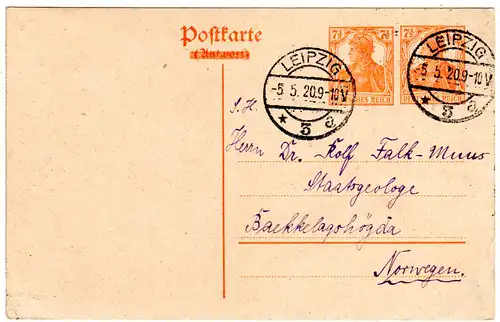 Postkarte
(Antwort)
7½ 7½ 7½
DEUTSCHES REICH
LEIPZIG
-5.5.20.9-10V
* 3 a
LEIPZIG
-5.5.20.9-10V
* 3 a
S. H.
Herrn Dr. Rolf Falk-Muus
Staatsgeologe
Baekkelagshögda
Norwegen.